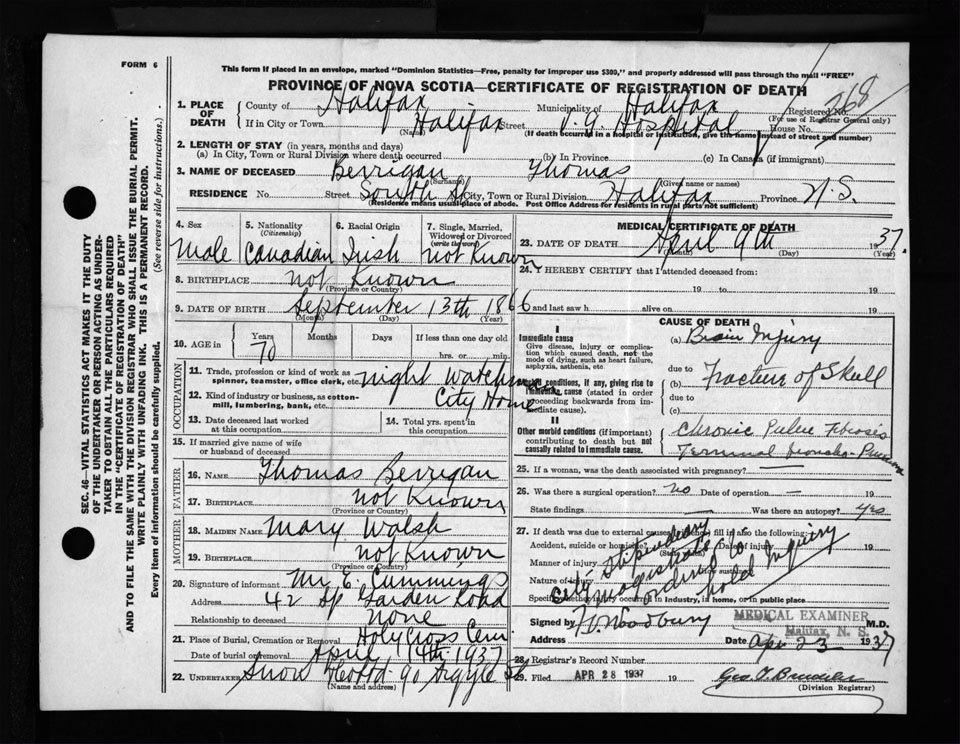 FORM 6
This form if placed in an envelope, marked "Dominion Statistics—Free, penalty for improper use $300," and properly addressed will pass through the mail "FREE"
PROVINCE OF NOVA SCOTIA—CERTIFICATE OF REGISTRATION OF DEATH
SEC. 46—VITAL STATISTICS ACT MAKES IT THE DUTY
OF THE UNDERTAKER OR PERSON ACTING AS UNDER-
TAKER TO OBTAIN ALL THE PARTICULARS REQUIRED
IN THE "CERTIFICATE OF REGISTRATION OF DEATH"
AND TO FILE THE SAME WITH THE DIVISION REGISTRAR WHO SHALL ISSUE THE BURIAL PERMIT.
WRITE PLAINLY WITH UNFADING INK. THIS IS A PERMANENT RECORD.
Every item of information should be carefully supplied. (See reverse side for instructions.)
1. PLACE OF DEATH County of Halifax Municipality of Halifax Registered No. 368
(For use of Registrar General only)
If in City or Town Halifax Street V. G. Hospital House No.
(Name) (If death occurred in a hospital or institution, give the name instead of street and number)
2. LENGTH OF STAY (in years, months and days)
(a) In City, Town or Rural Division where death occurred (b) In Province (c) In Canada (if immigrant)
3. NAME OF DECEASED Berrigan Thomas
(Surname) (Given name or names)
RESIDENCE No. Street South St City, Town or Rural Division Halifax Province N.S.
(Residence means usual place of abode. Post Office Address for residents in rural parts not sufficient)
4. Sex 5. Nationality (Citizenship) 6. Racial Origin 7. Single, Married, Widowed or Divorced (write the word)
Male Canadian Irish not Known
8. BIRTHPLACE not Known
(Province or Country)
9. DATE OF BIRTH September 13th 1866
(Month) (Day) (Year)
10. AGE in Years Months Days If less than one day old
70 hrs. or min.
OCCUPATION
11. Trade, profession or kind of work as spinner, teamster, office clerk, etc. night Watchman
12. Kind of industry or business, as cotton-mill, lumbering, bank, etc. City Home
13. Date deceased last worked at this occupation 14. Total yrs. spent in this occupation
15. If married give name of wife or husband of deceased
FATHER
16. NAME Thomas Berrigan
17. BIRTHPLACE not Known
(Province or Country)
MOTHER
18. MAIDEN NAME Mary Walsh
19. BIRTHPLACE not Known
(Province or Country)
20. Signature of informant Mr E. Cummings
Address 42 Sp Garden Road
Relationship to deceased none
21. Place of Burial, Cremation or Removal Holy Cross Cem.
Date of burial or removal April 14th 1937
22. UNDERTAKER Snow 90 Argyle St
(Name and address)
MEDICAL CERTIFICATE OF DEATH
23. DATE OF DEATH April 9th 1937
(Month) (Day) (Year)
24. I HEREBY CERTIFY that I attended deceased from:
19 to 19
and last saw h alive on 19
CAUSE OF DEATH
I
Immediate cause
Give disease, injury or complication which caused death, not the mode of dying, such as heart failure, asphyxia, asthenia, etc.
(a) Brain Injury
due to
Morbid conditions, if any, giving rise to immediate cause (stated in order proceeding backwards from immediate cause).
(b) Fracture of Skull
due to
(c)
II
Other morbid conditions (if important) contributing to death but not causally related to immediate cause.
Chronic Fibrosis
Terminal broncho-Pneumonia
25. If a woman, was the death associated with pregnancy? —
26. Was there a surgical operation? no Date of operation — 19
State findings — Was there an autopsy? yes
27. If death was due to external causes fill in also the following:
Accident, suicide or homicide? Date of injury 19
Manner of injury
Nature of injury
Specify whether injury occurred in industry, in home, or in public place
City Stipendiary
Magistrate
ordered to
hold Inquiry
Signed by H. Woodbury M.D.
MEDICAL EXAMINER
Halifax, N. S.
Address Date Apr 23 1937
28. Registrar's Record Number
29. Filed APR 28 1937 19
(Division Registrar)